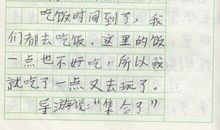 吃饭时间到了，我
们都去吃饭。这里的饭
一点也不好吃，所以我
就吃了一点又去玩了。
导游说：“集合了”